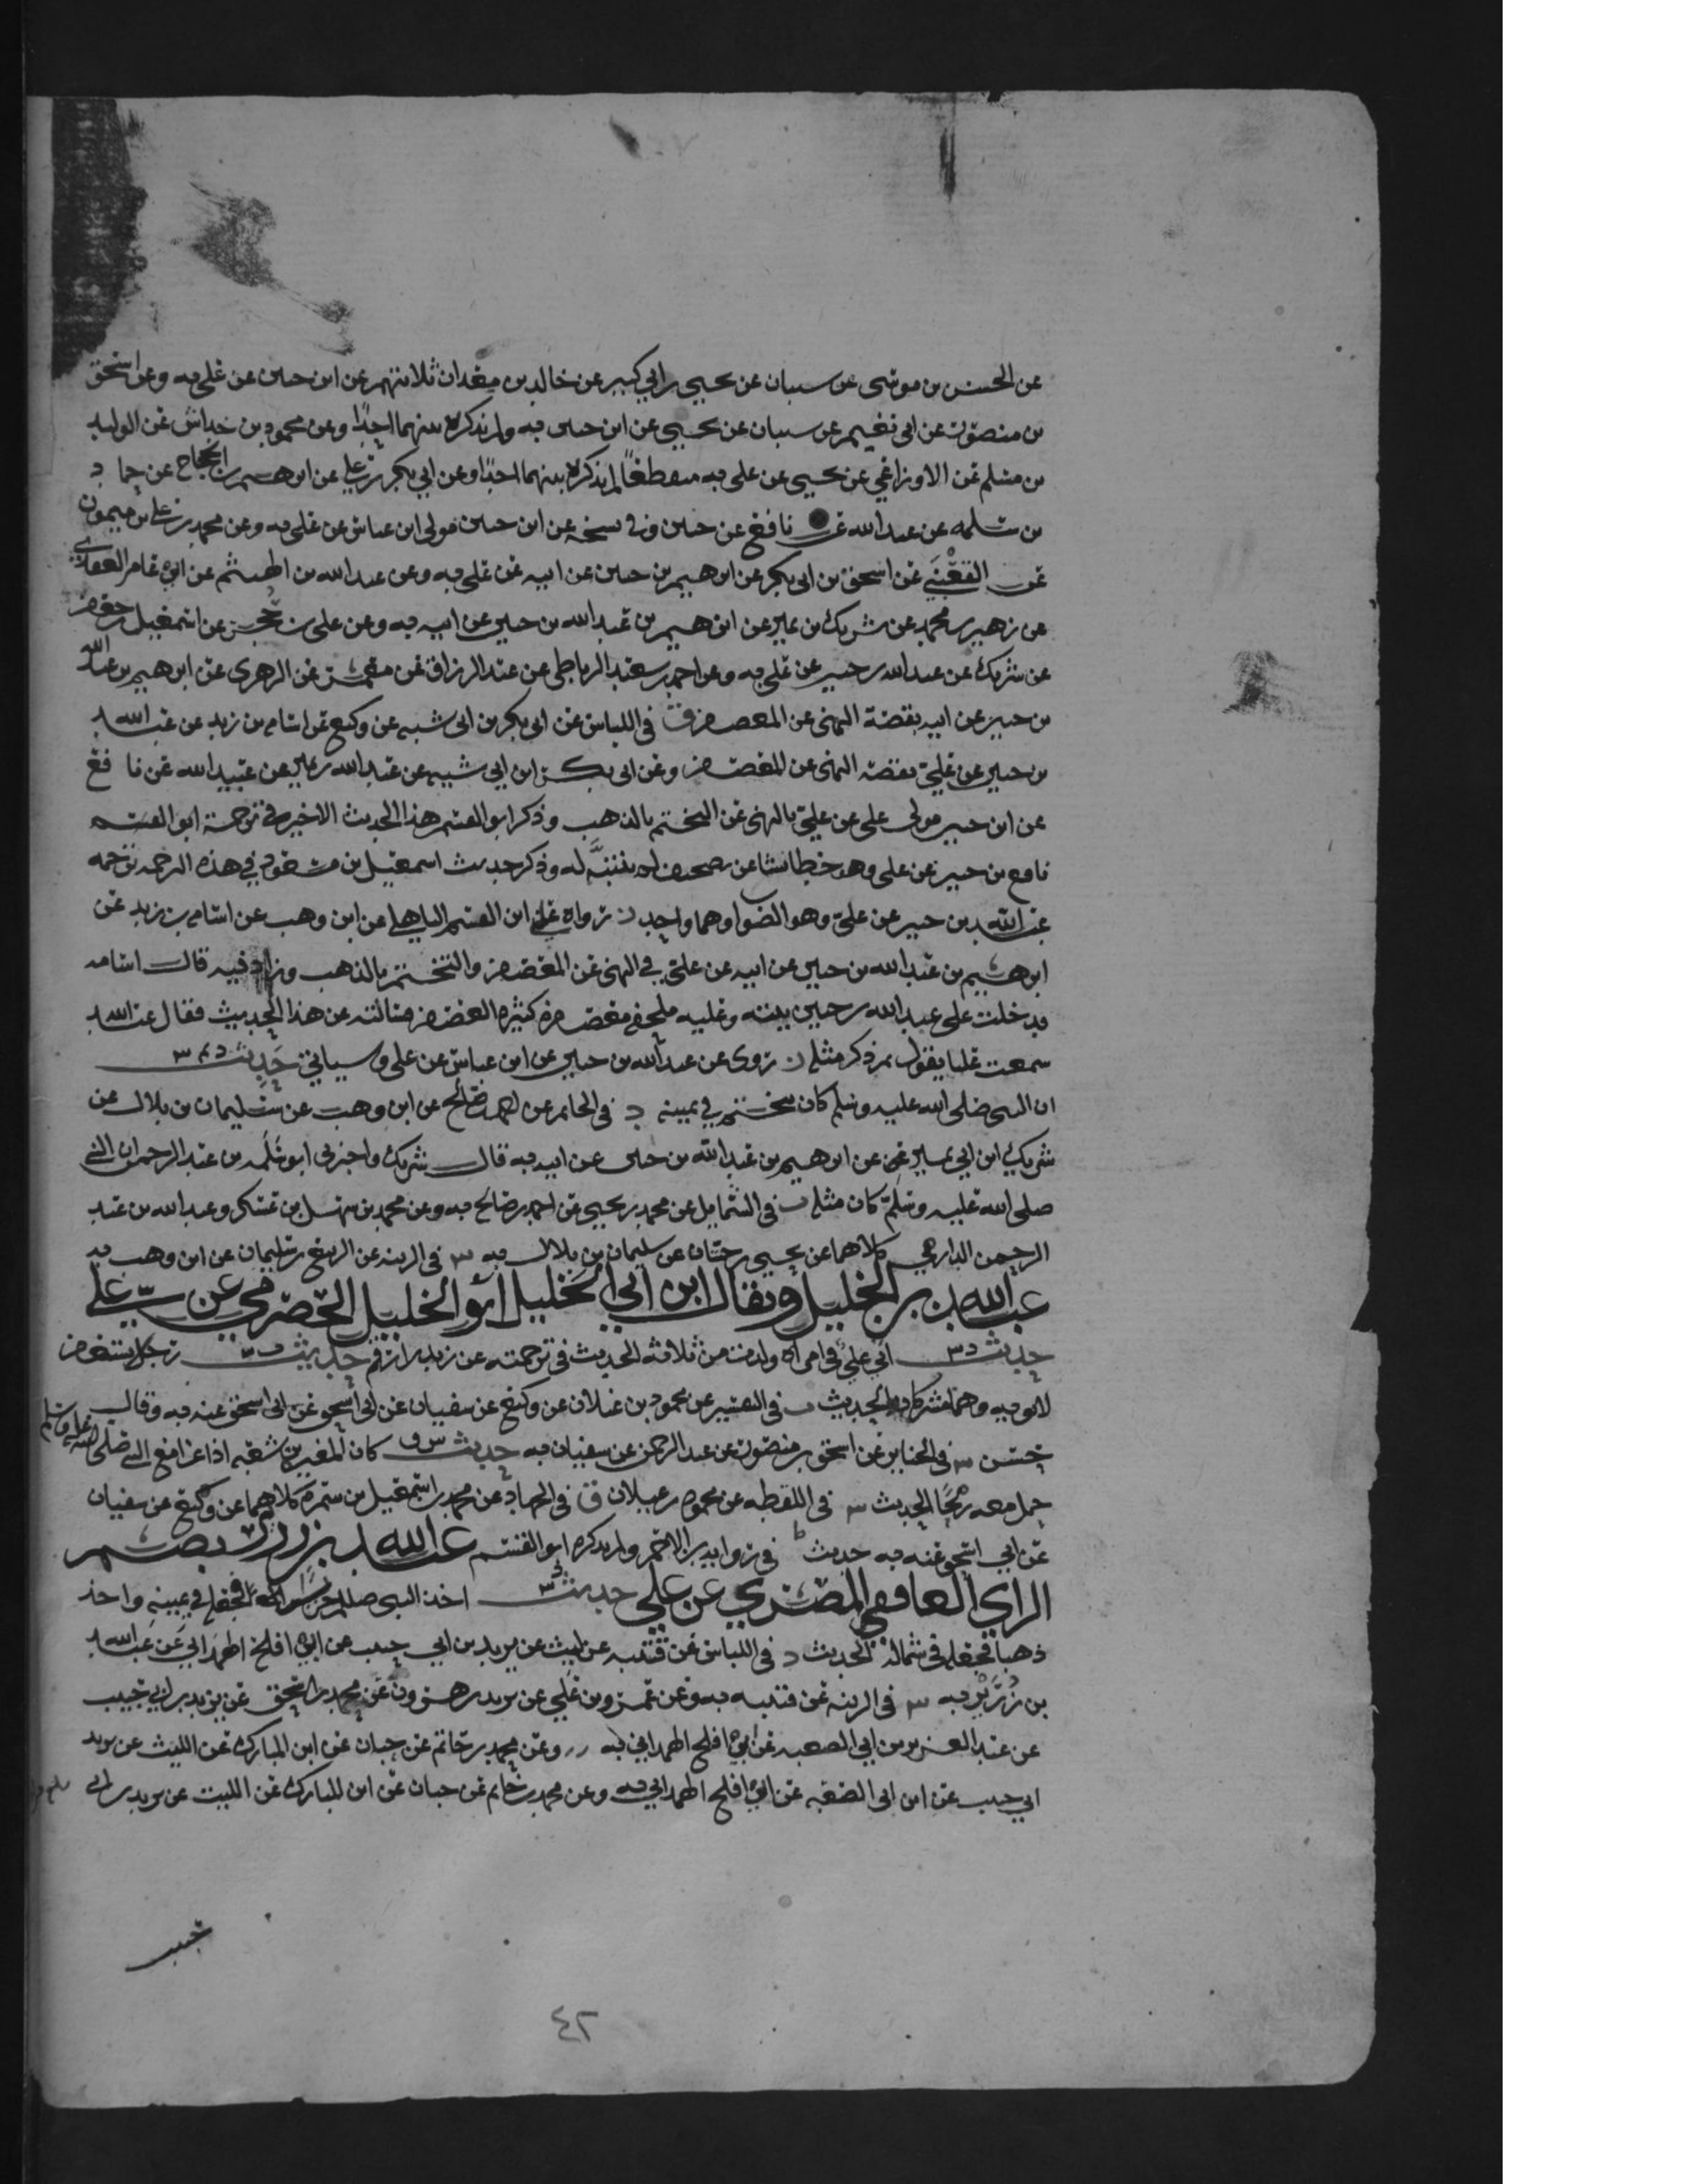 عن الحسن بن موسى عن سيبان عن يحيى بن ابي كثير عن خالد بن معدان ثلاثتهم عن ابن حنين عن علي به وعن اسحق
بن منصور عن ابي نعيم عن سيبان عن يحيى عن ابن حنين به ولم يذكر بينهما احدًا وعن محمود بن خداش عن الوليد
بن مسلم عن الاوزاعي عن يحيى عن علي به منقطعًا لم يذكر بينهما احدًا وعن ابي بكر بن علي عن ابرهيم بن الحجاج عن حماد
بن سلمه عن عبد الله عن نافع عن حنين وفي نسخه عن ابن حنين مولى ابن عباس عن علي به وعن محمد بن علي بن ميمون
عن القعنبي عن اسحق بن ابي بكر عن ابرهيم بن حنين عن ابيه عن علي به وعن عبد الله بن الهيثم عن ابي عامر العقدي
عن زهير بن محمد عن شريك بن عن ابرهيم بن عبد الله بن حنين عن ابيه به وعن علي بن حجر عن اسمعيل بن جعفر
عن شريك عن عبد الله بن حنين عن علي به وعن احمد بن سعيد الرباطي عن عبد الرزاق عن معمر عن الزهري عن ابرهيم بن عبد الله
بن حنين عن ابيه بقصة النهى عن المعصفر ق في اللباس عن ابي بكر بن ابي شيبه عن وكيع عن اسامه بن زيد عن عبد الله
بن حنين عن علي بقصة النهى عن المعصفر وعن ابي بكر ابن ابي شيبه عن عبد الله بن نمير عن عبيد الله عن نافع
عن ابن حنين مولى علي عن علي بالنهى عن التختم بالذهب وذكر ابو القسم هذا الحديث الاخير في ترجمة ابو القسم
نافع بن حنين عن علي وهو خطا نشا عن تصحيف لم يتنبَّه له وذكر حديث اسمعيل بن مسعود في هذه الترجمه ترجمه
عبد الله بن حنين عن علي وهو الصواب وهما واحد ز رواه علي ابن القسم الباهلي عن ابن وهب عن اسامه بن زيد عن
ابرهيم بن عبد الله بن حنين عن ابيه عن علي في النهى عن المعصفر والتختم بالذهب وزاد فيه قال اسامه
فدخلت على عبد الله بن حنين بيته وعليه ملحفه معصفره كثيره العصفر فسالته عن هذا الحديث فقال عبد الله
سمعت عليا يقول فذكر مثله ز روى عن عبد الله بن حنين عن ابن عباس عن علي وسياتي حديث د تم س
ان النبي صلى الله عليه وسلم كان يتختم في يمينه د في الخاتم عن احمد بن صالح عن ابن وهب عن سليمان بن بلال عن
شريك ابن ابي نمير عن ابرهيم بن عبد الله بن حنين عن ابيه به قال شريك واخبرني ابو سلمه بن عبد الرحمن ان النبي
صلى الله عليه وسلم كان مثله ت في الشمايل عن محمد بن يحيى عن احمد بن صالح به وعن محمد بن سهل بن عسكر وعبد الله بن عبد
الرحمن الدارمي كلاهما عن يحيى بن حسان عن سليمان بن بلال به س في الزينه عن الربيع بن سليمان عن ابن وهب به
عبد الله بن الخليل ويقال ابن ابي الخليل ابو الخليل الحضرمي عن علي
حديث د س اتي علي في امراه ولدت من ثلاثه الحديث في ترجمته عن زيد بن ارقم حديث ت س رجل يستغفر
لابويه وهما مشركان الحديث ت في التفسير عن محمود بن غيلان عن وكيع عن سفيان عن ابي اسحق عنه به وقال
حسن س في الجنايز عن اسحق بن منصور عن عبد الرحمن عن سفيان به حديث س ق كان المغيره بن شعبه اذا غزا مع النبي صلى الله عليه وسلم
حمل معه رمحًا الحديث س في اللقطه عن محمود بن غيلان ق في الجهاد عن محمد بن اسمعيل بن سمره كلاهما عن وكيع عن سفيان
عن ابي اسحق عنه به حديث س في رواية ابن الاحمر ولم يذكره ابو القسم عبد الله بن زرير بضم
الزاي الغافقي المصري عن علي حديث د س ق اخذ النبي صلعم حريرا فجعله في يمينه واخذ
ذهبا فجعله في شماله الحديث د في اللباس عن قتيبه عن ليث عن يزيد بن ابي حبيب عن ابي افلح الهمداني عن عبد الله
بن زُرَيْرٍ به س في الزينه عن قتيبه به وعن عمرو بن علي عن يزيد بن هرون عن محمد بن اسحق عن يزيد بن ابي حبيب
عن عبد العزيز بن ابي الصعبه عن ابي افلح الهمداني به وعن محمد بن حاتم عن حبان عن ابن المبارك عن الليث عن يزيد
ابي حبيب عن ابن ابي الصعبه عن ابي افلح الهمداني به وعن محمد بن حاتم عن حبان عن ابن المبارك عن الليث عن يزيد بن ابي
حبيب
٤٢